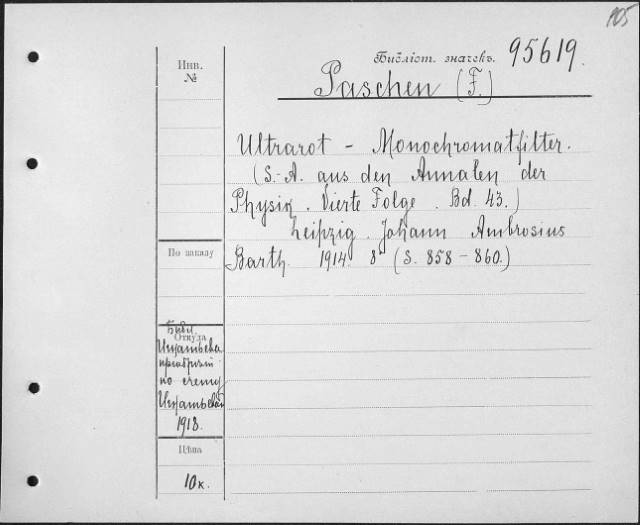 105
Библіот. значекъ. 95619.
Инв.
№
Paschen (F.)
Ultrarot - Monochromatfilter.
(S.-A. aus den Annalen der
Physik. Vierte Folge. Bd. 43.)
Leipzig. Johann Ambrosius
Barth. 1914. 8° (S. 858-860.)
По заказу
Библ.
Откуда
Игнатьева
приобрит
по счету
Игнатьевой
1918.
Цѣна
10к.